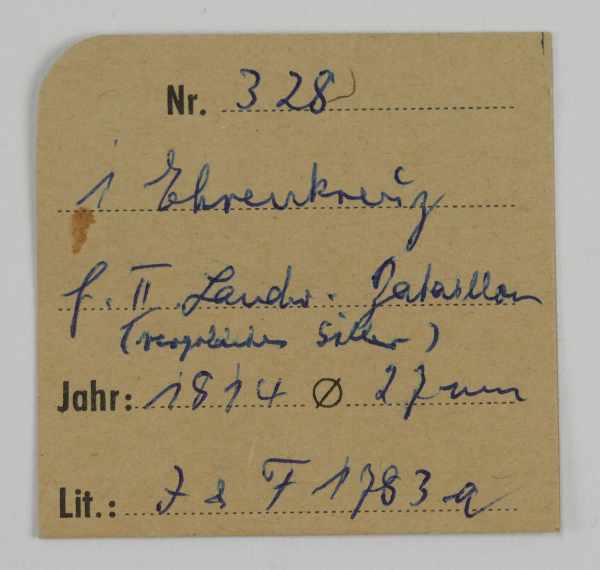 Nr. 328
1 Ehrenkreuz
f. II. Landw. Bataillon
(vergoldetes Silber)
Jahr: 1814 Ø 27 mm
Lit.: J & F 1783 a